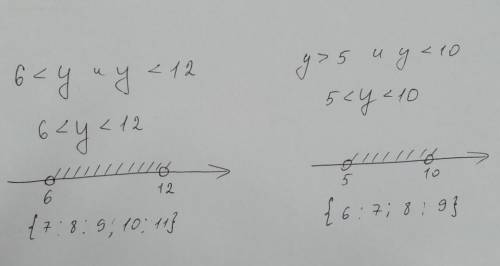 6 < y и y < 12
6 < y < 12
6 12
{7; 8; 9; 10; 11}
y > 5 и y < 10
5 < y < 10
5 10
{6; 7; 8; 9}